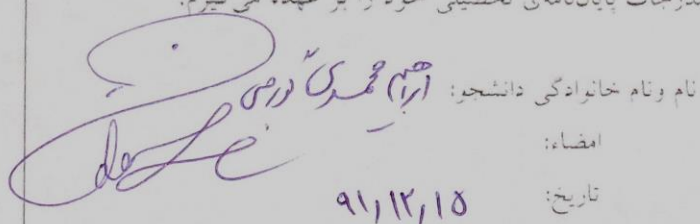 مندرجات پایان‌نامه‌ی تحصیلی خود را بر عهده می‌گیرم.
نام ونام خانوادگی دانشجو: ابراهیم محمدی
امضاء:
تاریخ: ۹۱,۱۲,۱۵